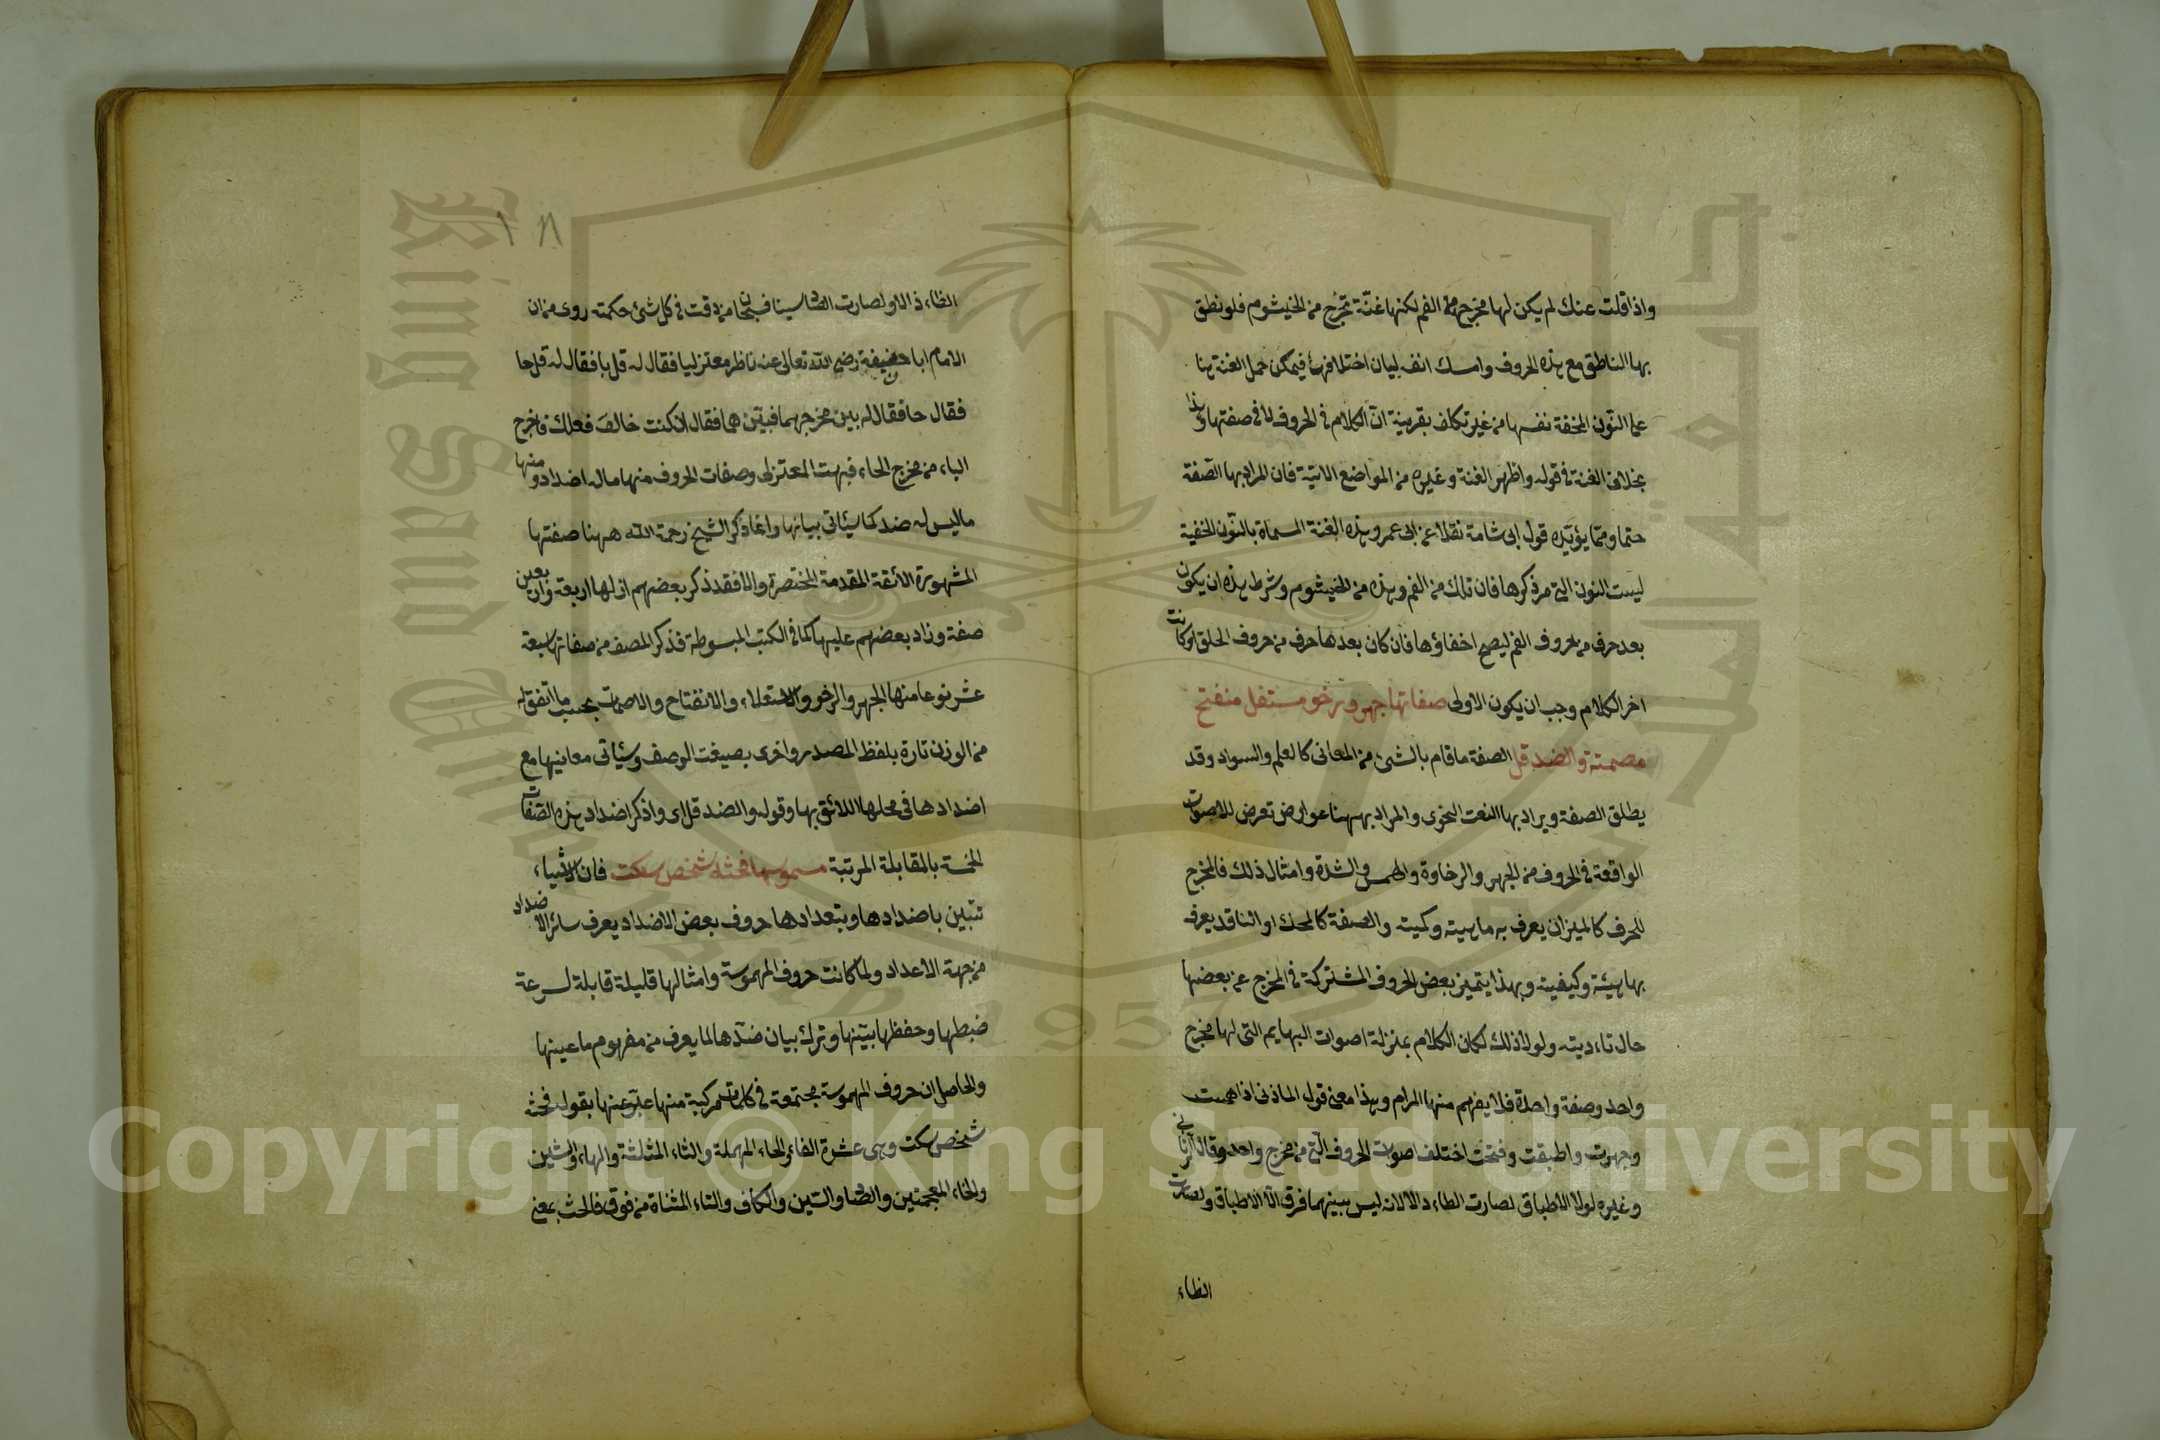 واذا قلت عنك لم يكن لها مخرج من الفم لكنها غنّة تخرج من الخيشوم فلو نطق
بها الناطق مع هذه الحروف وامسك انفه لبان اختلافها فيمكن حمل الغنة هنا
على النون المخفة نفسها من غير تكلف بقرينة انّ الكلام في الحروف لا في صفتها وهذا
بخلاف الغنة في قوله واظهر الغنة وغيره من المواضع الاتية فان المراد بها الصفة
حتما ومما يؤيّده قول ابى شامة نقلا عن ابى عمرو هذه الغنة المسماة بالنّون الخفية
ليست النون التي مر ذكرها فان تلك من الفم وهذه من الخيشوم وشرط هذه ان يكون
بعد حرف من حروف الفم ليصح اخفاؤها فان كان بعدها حرف من حروف الحلق او كانت
اخر الكلام وجب ان يكون الاولى صفاتها جهر ورخو مستفل منفتح
مصمتة والضد قل الصفة ما قام بالشئ من المعانى كالعلم والسواد وقد
يطلق الصفة ويراد بها النعت النحوى والمراد بها ههنا عوارض تعرض للاصوات
الواقعة في الحروف من الجهر والرخاوة والهمس والشدة وامثال ذلك فالمخرج
للحرف كالميزان يعرف به ماهيته وكميته والصفة كالمحك او الناقد يعرف
بها هيئته وكيفيته وبهذا يتميز بعض الحروف المشتركة في المخرج عن بعضها
حال تاءديته ولولا ذلك لكان الكلام بمنزلة اصوات البهايم التى لها مخرج
واحد وصفة واحدة فلا يفهم منها المرام وهذا معنى قول الماذنى اذا همست
وجهرت واطبقت وفتحت اختلف اصوات الحروف الّتي من مخرج واحد وقال الرمانى
وغيره لولا الاطباق لصارت الطاء دالا لانه ليس بينهما فرق الّا الاطباق ولصارت
الظاء
١٨
الظاء ذالا ولصارت الصاد سينا فسبحان من دقت في كل شئ حكمته روى من ان
الامام ابا حنيفة رضى الله تعالى عنه ناظر معتزليا فقال له قل با فقال له قل حا
فقال حا فقال له بين مخرجهما فبيّن هما فقال ان كنت خالق فعلك فاخرج
الباء من مخرج الحاء فبهت المعتزلى وصفات الحروف منها ماله اضداد ومنها
ما ليس له ضد كما سيئاتى بيانها وانما ذكر الشيخ رحمة الله ههنا صفتها
المشهورة الائقة المقدمة المختصرة والا فقد ذكر بعضهم ان لها اربعة واربعين
صفة وزاد بعضهم عليها كما في الكتب المبسوطة فذكر المصنف من صفاتها سبعة
عشر نوعا منها الجهر والرخو والاستعلاء والانفتاح والاصمات بحسب ما اتفق له
من الوزن تارة بلفظ المصدر واخرى بصيغة الوصف وسيئاتى معانيها مع
اضدادها في محلها اللائق بها وقوله والضد قل اى واذكر اضداد هذه الصّفات
الخمسة بالمقابلة المرتبة مهموسها فحثه شخص سكت فان الاشياء
تتبين باضدادها وبتعدادها حروف بعض الاضداد يعرف سائر الاضداد
من جهة الاعداد ولما كانت حروف المهموسة وامثالها قليلة قابلة لسرعة
ضبطها وحفظها بيّنها وترك بيان ضدّها لما يعرف من مفهوم ما عينها
والحاصل ان حروف المهموسة مجتمعة في كلمة مركبة منها عبّر عنها بقوله فحثه
شخص سكت وهي عشرة الفاء والحاء المهملة والثاء المثلثة والهاء والشين
والخاء المعجمتين والصاد والسّين والكاف والتاء المثناة من فوق فالحث بمعنى
Copyright © King Saud University